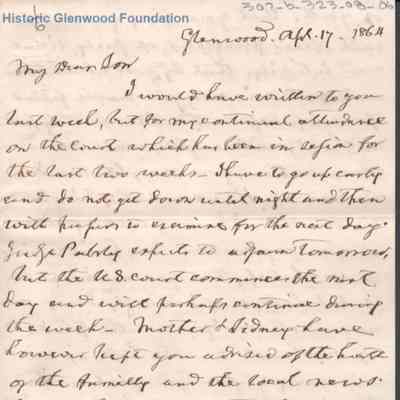 Historic Glenwood Foundation
302-b-323-08-06
6
Glenwood. Apl. 17. 1864
My Dear Son
I would have written to you
last week, but for my continual attendance
on the Court which has been in session for
the last two weeks - I have to go up early
and do not get down until night and then
with papers to examine for the next day.
Judge expects to adjourn tomorrow,
but the US court commences the next
day and will perhaps continue during
the week - Mother & Sidney have
however kept you advised of the health
of the familly and the local news.